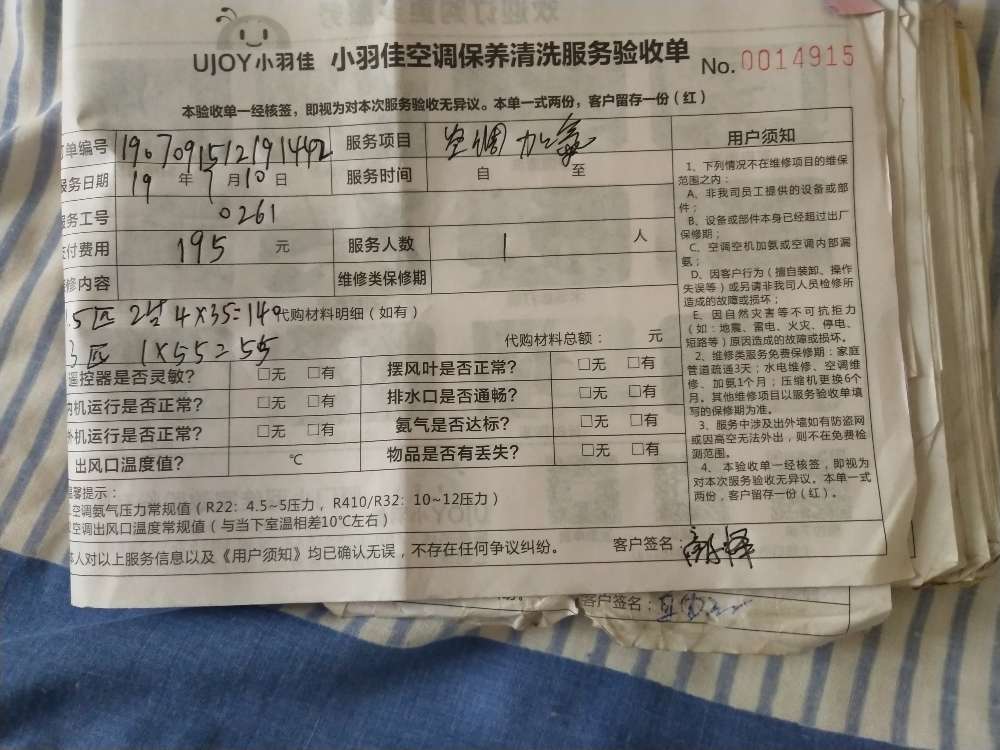 UJOY小羽佳 小羽佳空调保养清洗服务验收单 No. 0014915
本验收单一经核签，即视为对本次服务验收无异议。本单一式两份，客户留存一份（红）
单编号 190709151219144 服务项目 空调加氟
服务日期 19 年 7 月 10 日 服务时间 自 至
务工号 0261
付费用 195 元 服务人数 1 人
修内容 维修类保修期
.5匹 2台 4×35=140 代购材料明细（如有）
3匹 1×55=55 代购材料总额： 元
遥控器是否灵敏？ □无 □有 摆风叶是否正常？ □无 □有
内机运行是否正常？ □无 □有 排水口是否通畅？ □无 □有
外机运行是否正常？ □无 □有 氨气是否达标？ □无 □有
出风口温度值？ ℃ 物品是否有丢失？ □无 □有
温馨提示：
空调氨气压力常规值（R22：4.5~5压力，R410/R32：10~12压力）
空调出风口温度常规值（与当下室温相差10℃左右）
本人对以上服务信息以及《用户须知》均已确认无误，不存在任何争议纠纷。 客户签名：
用户须知
1、下列情况不在维修项目的维保
范围之内：
A、非我司员工提供的设备或部
件；
B、设备或部件本身已经超过出厂
保修期；
C、空调空机加氨或空调内部漏
氨；
D、因客户行为（擅自装卸、操作
失误等）或另请非我司人员检修所
造成的故障或损坏；
E、因自然灾害等不可抗拒力
（如：地震、雷电、火灾、停电、
短路等）原因造成的故障或损坏。
2、维修类服务免费保修期：家庭
管道疏通3天；水电维修、空调维
修、加氨1个月；压缩机更换6个
月。其他维修项目以服务验收单填
写的保修期为准。
3、服务中涉及出外墙如有防盗网
或因高空无法外出，则不在免费检
测范围。
4、本验收单一经核签，即视为
对本次服务验收无异议。本单一式
两份，客户留存一份（红）。
客户签名：